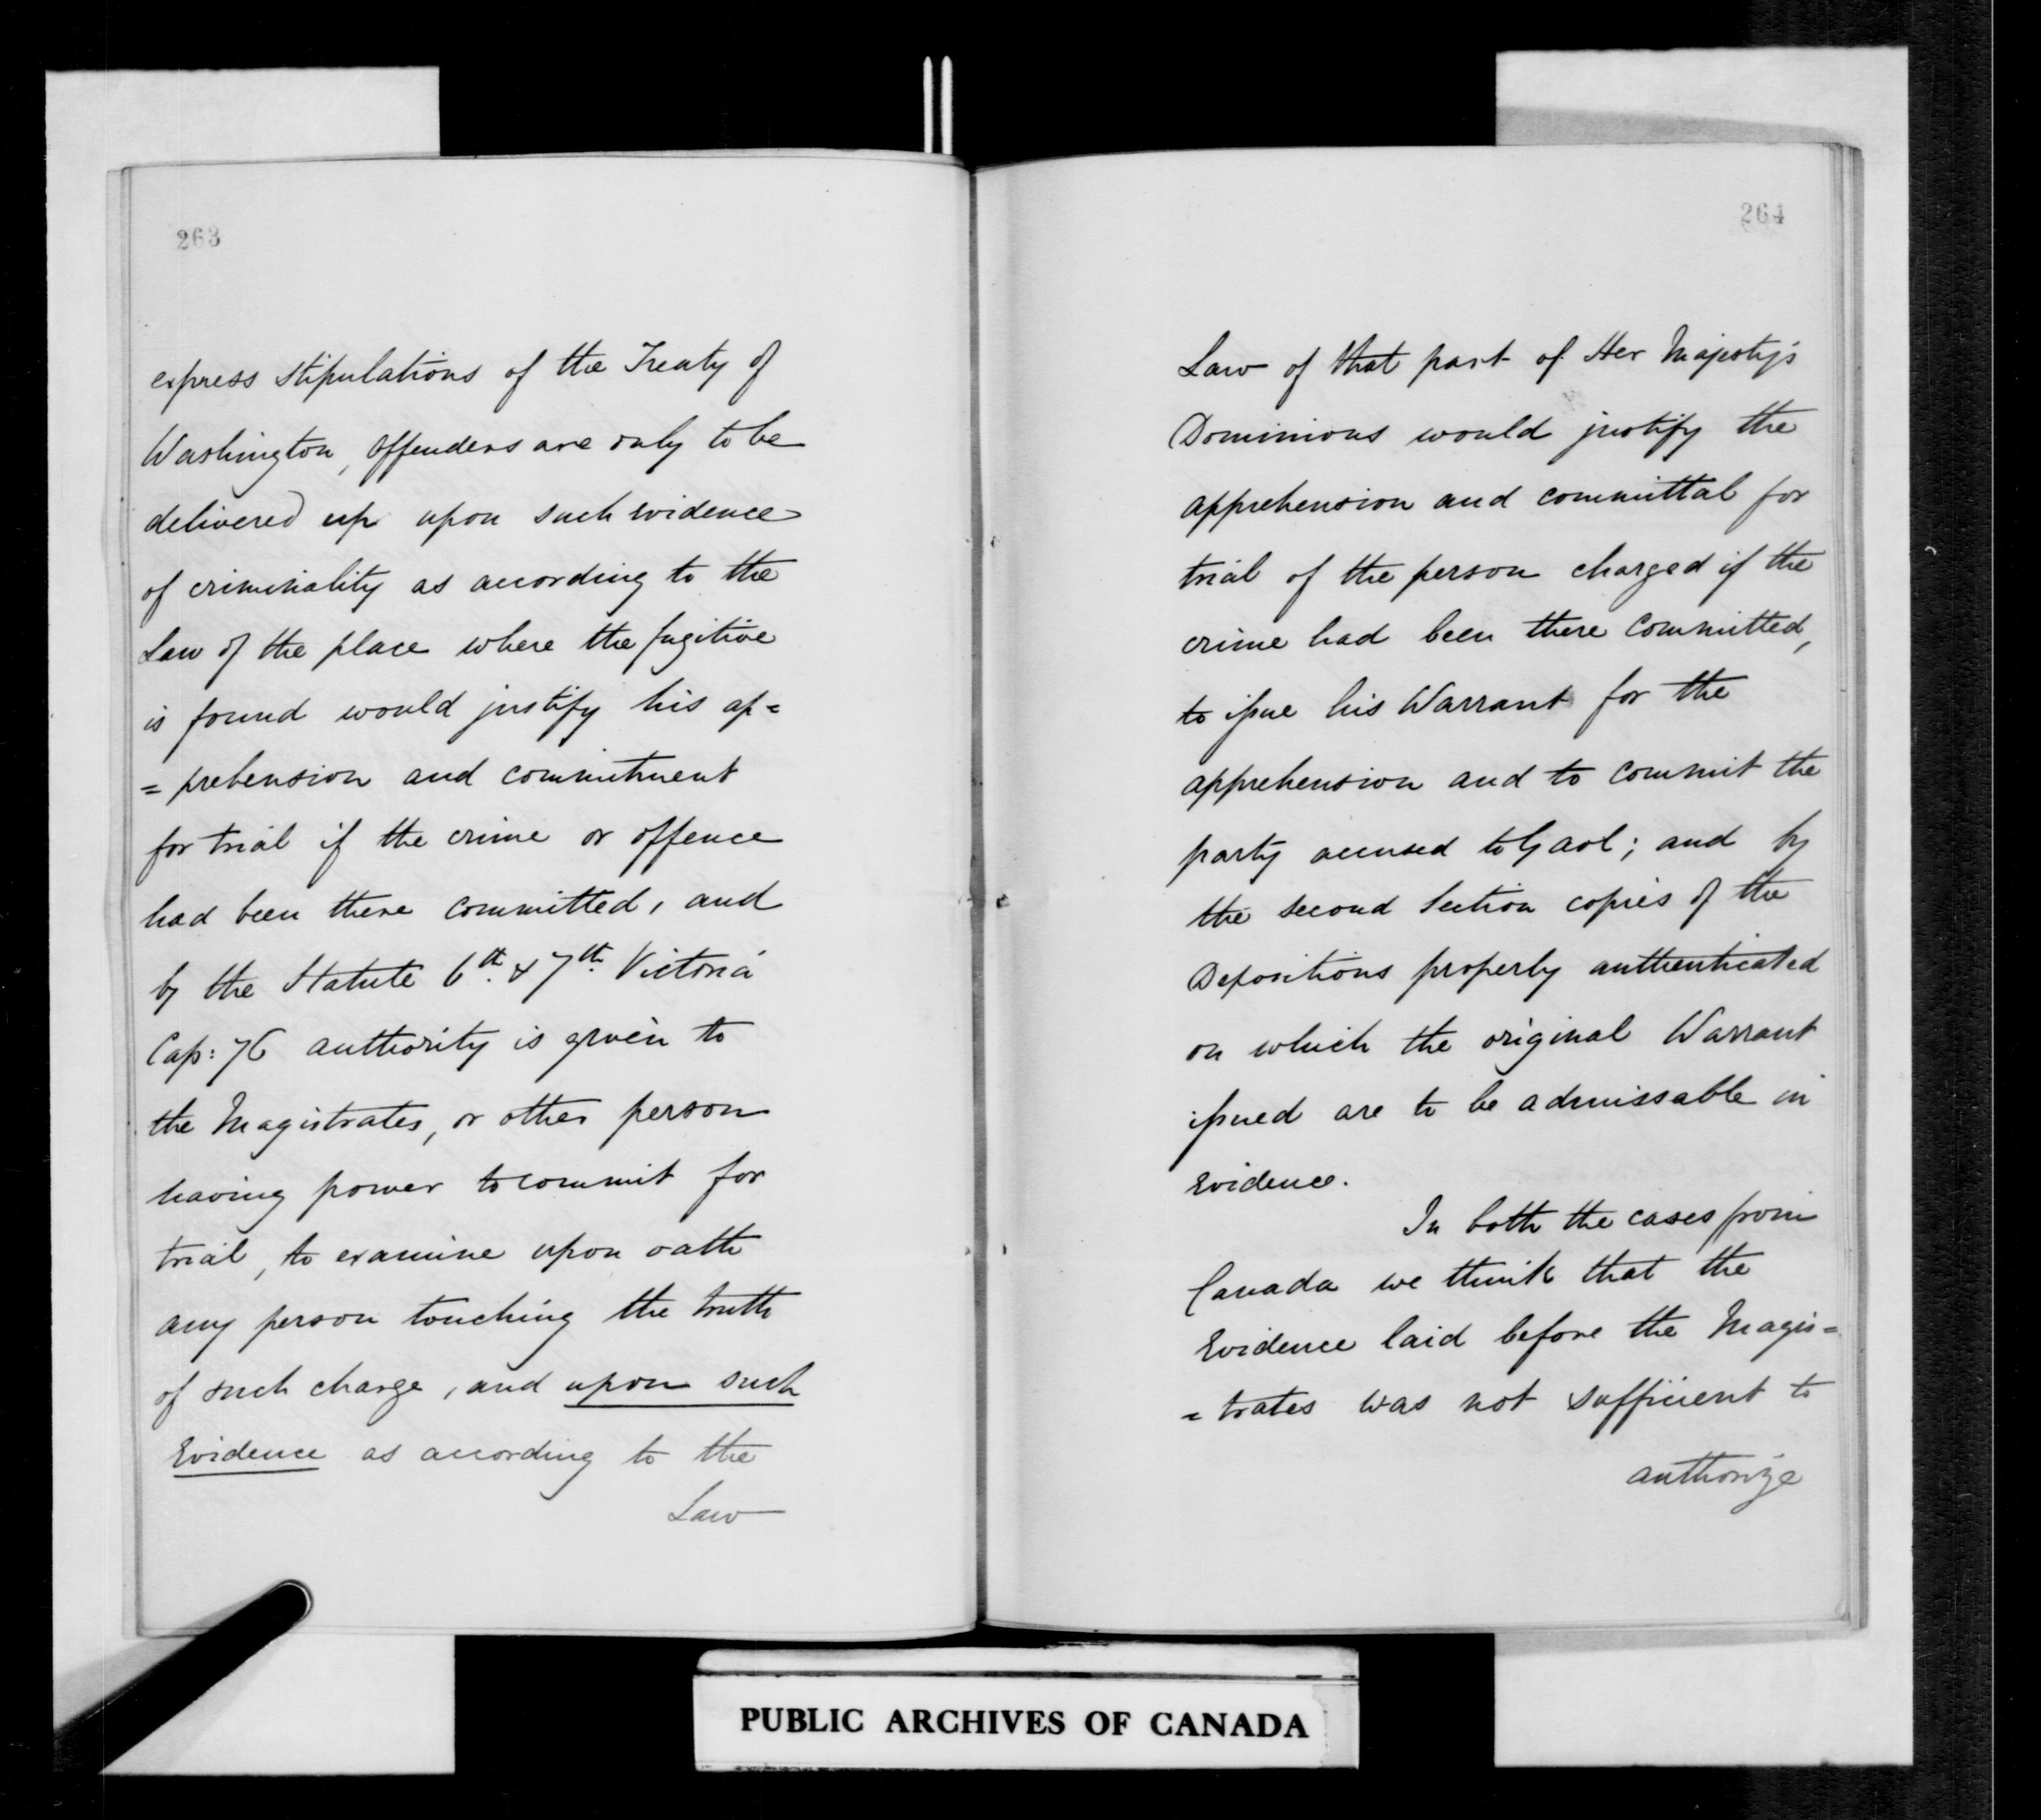 263
express stipulations of the Treaty of
Washington, offenders are only to be
delivered up upon such evidence
of criminality as according to the
Law of the place where the fugitive
is found would justify his ap=
=prehension and commitment
for trial if the crime or offence
had been there committed, and
by the Statute 6th. & 7th. Victoria
Cap: 76 authority is given to
the Magistrates, or other person
having power to commit for
trial, to examine upon oath
any person touching the truth
of such charge, and upon such
Evidence as according to the
Law
264
Law of that part of Her Majesty's
Dominions would justify the
apprehension and committal for
trial of the person charged if the
crime had been there committed,
to issue his Warrant for the
apprehension and to commit the
party accused to Gaol; and by
the second Section copies of the
Depositions properly authenticated
on which the original Warrant
issued are to be admissable in
Evidence.
In both the cases from
Canada we think that the
Evidence laid before the Magis=
=trates was not sufficient to
authorize
PUBLIC ARCHIVES OF CANADA